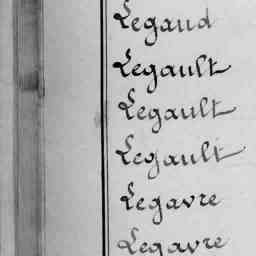 Legaud
Legault
Legault
Legault
Legavre
Legavre